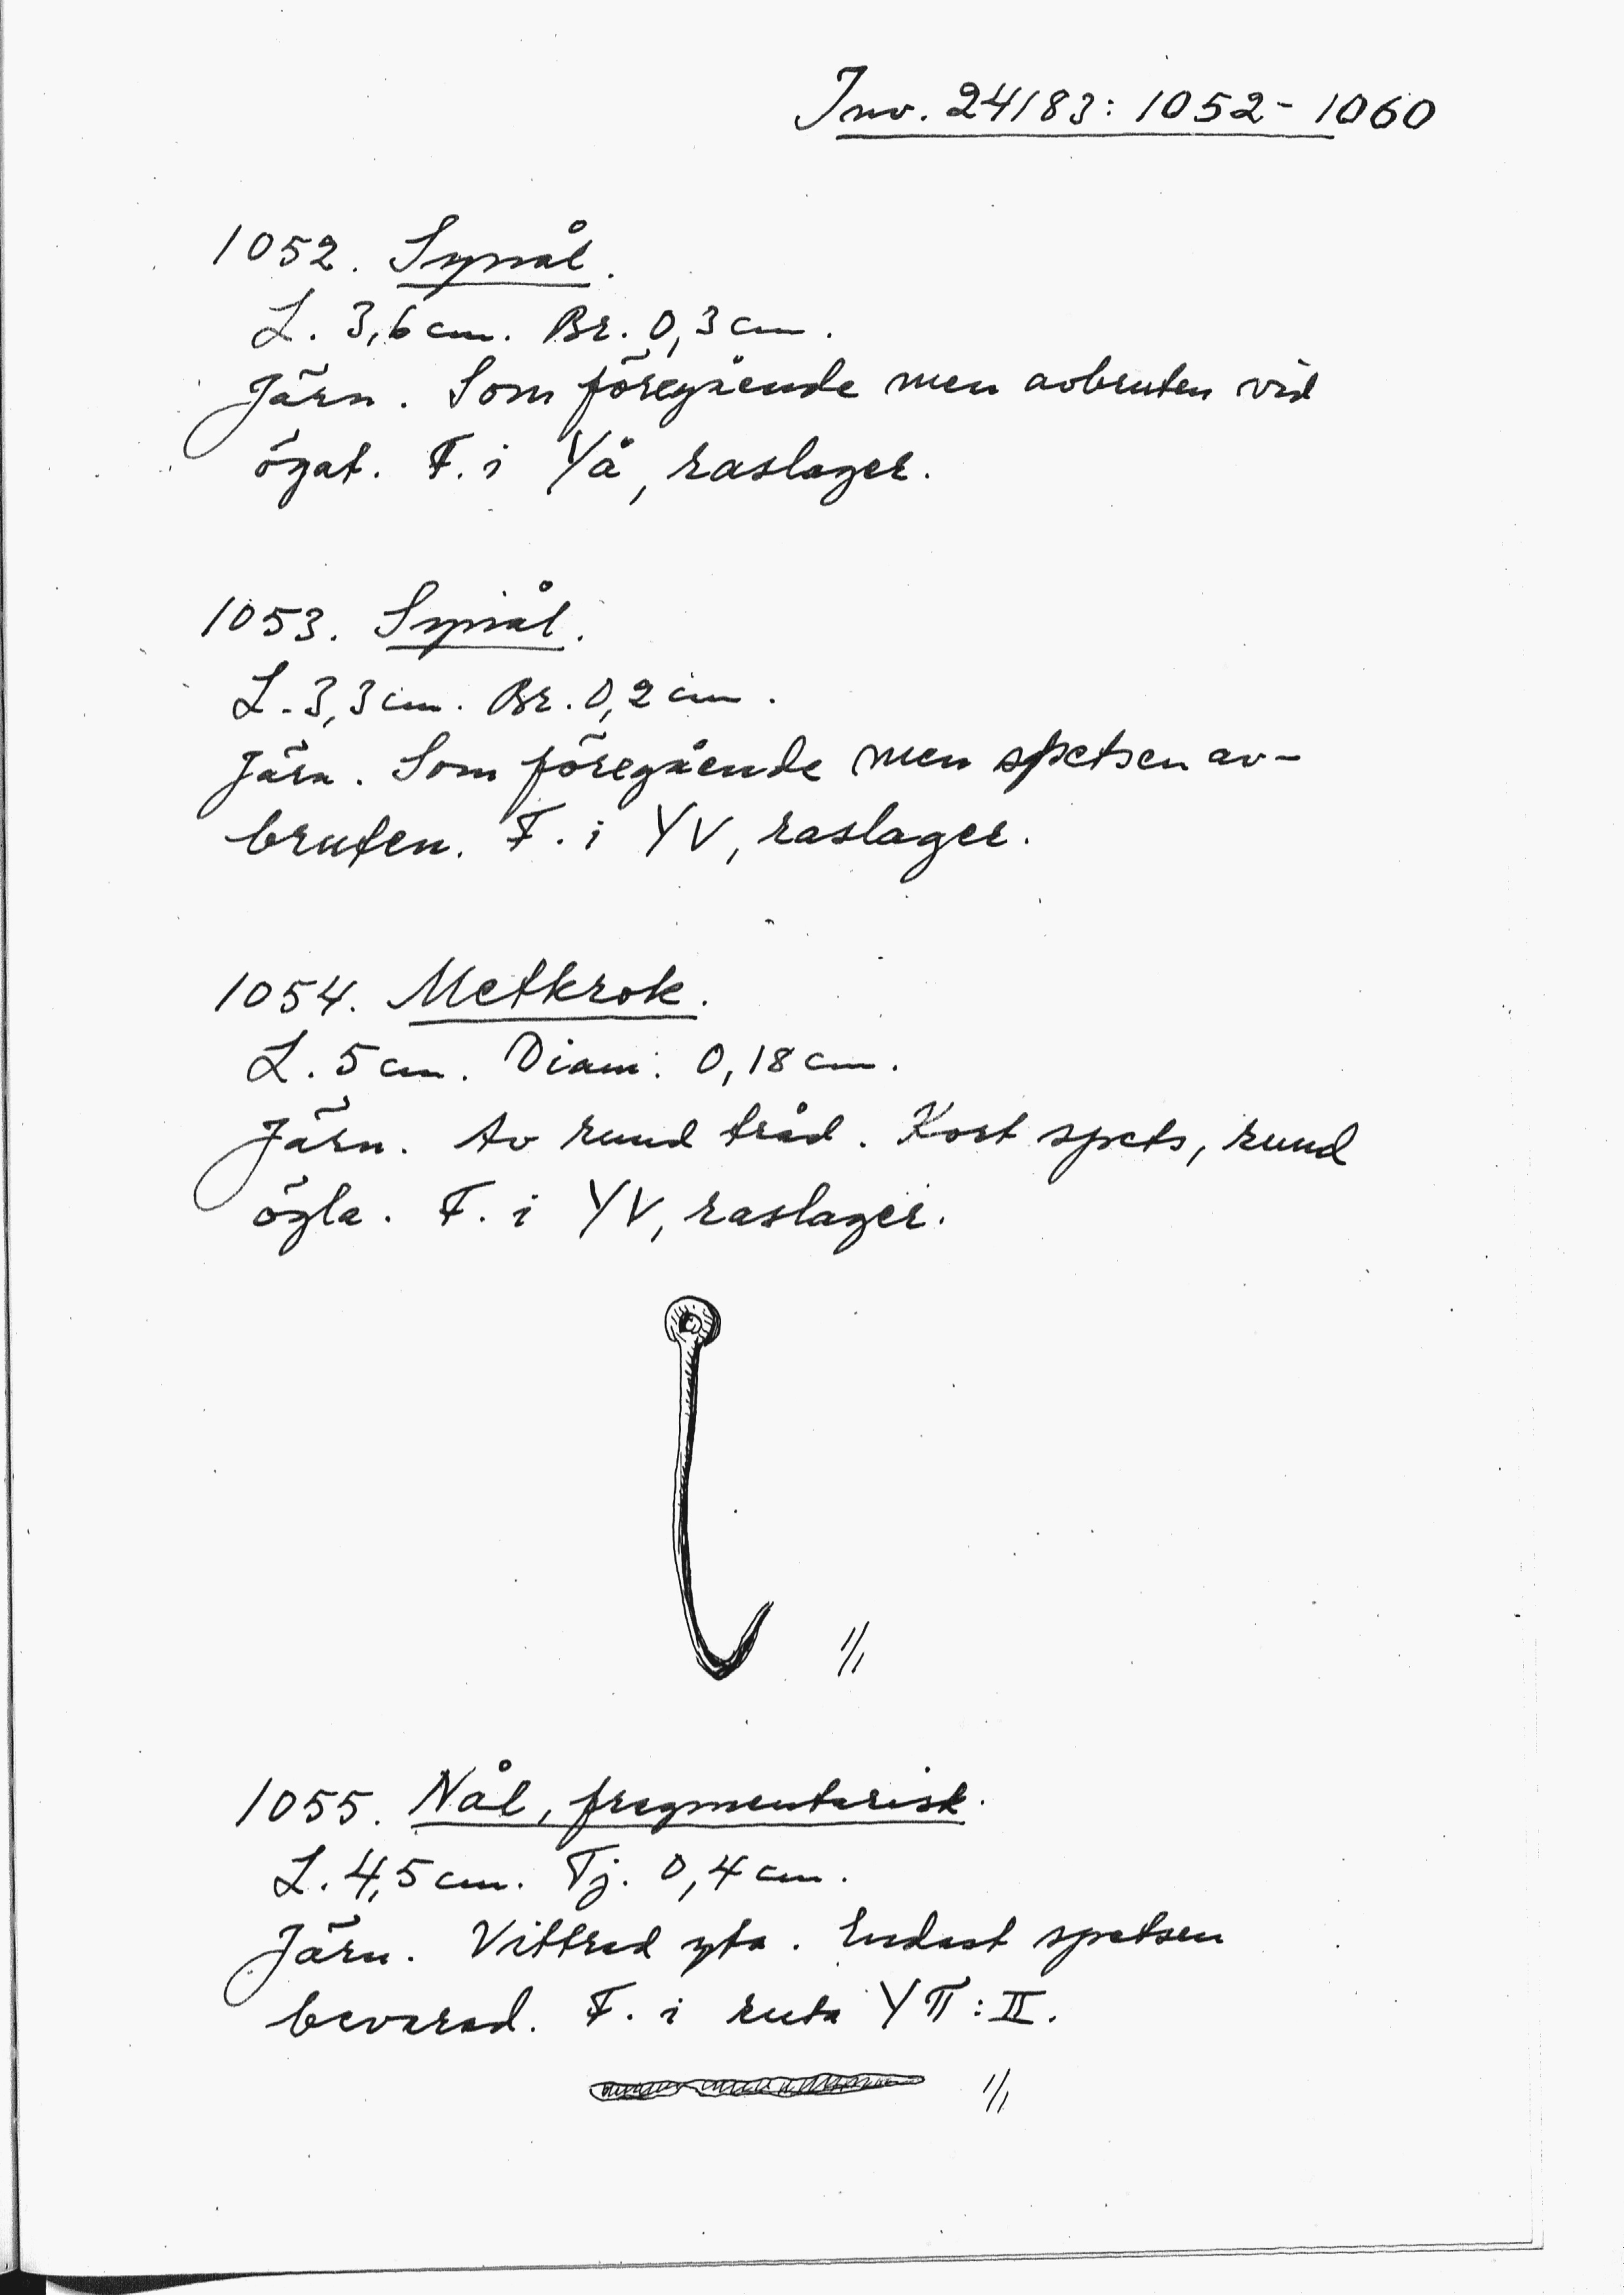 Inv. 24183: 1052-1060
1052. Synål.
L. 3,6 cm. Br. 0,3 cm.
Järn. Som föregående men avbruten vid
ögat. F. i YÅ, raslager.
1053. Synål.
L. 3,3 cm. Br. 0,2 cm.
Järn. Som föregående men spetsen av-
bruten. F. i YV, raslager.
1054. Metkrok.
L. 5 cm. Diam: 0,18 cm.
Järn. Av rund tråd. Kort spets, rund
ögla. F. i YV, raslager.
1/1
1055. Nål, fragmentarisk.
L. 4,5 cm. Tj. 0,4 cm.
Järn. Vittrad yta. Endast spetsen
bevarad. F. i ruta Y π : II.
1/1